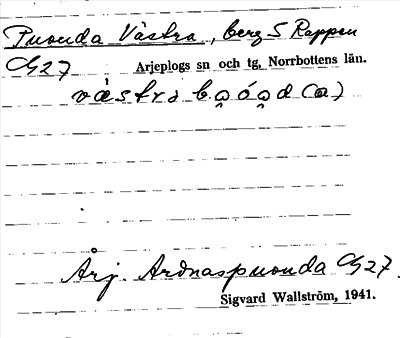 Puouda Västra, berg S Rappen
G27 Arjeplogs sn och tg, Norrbottens län.
västra
Årj. Ardnaspuouda G27.
Sigvard Wallström, 1941.